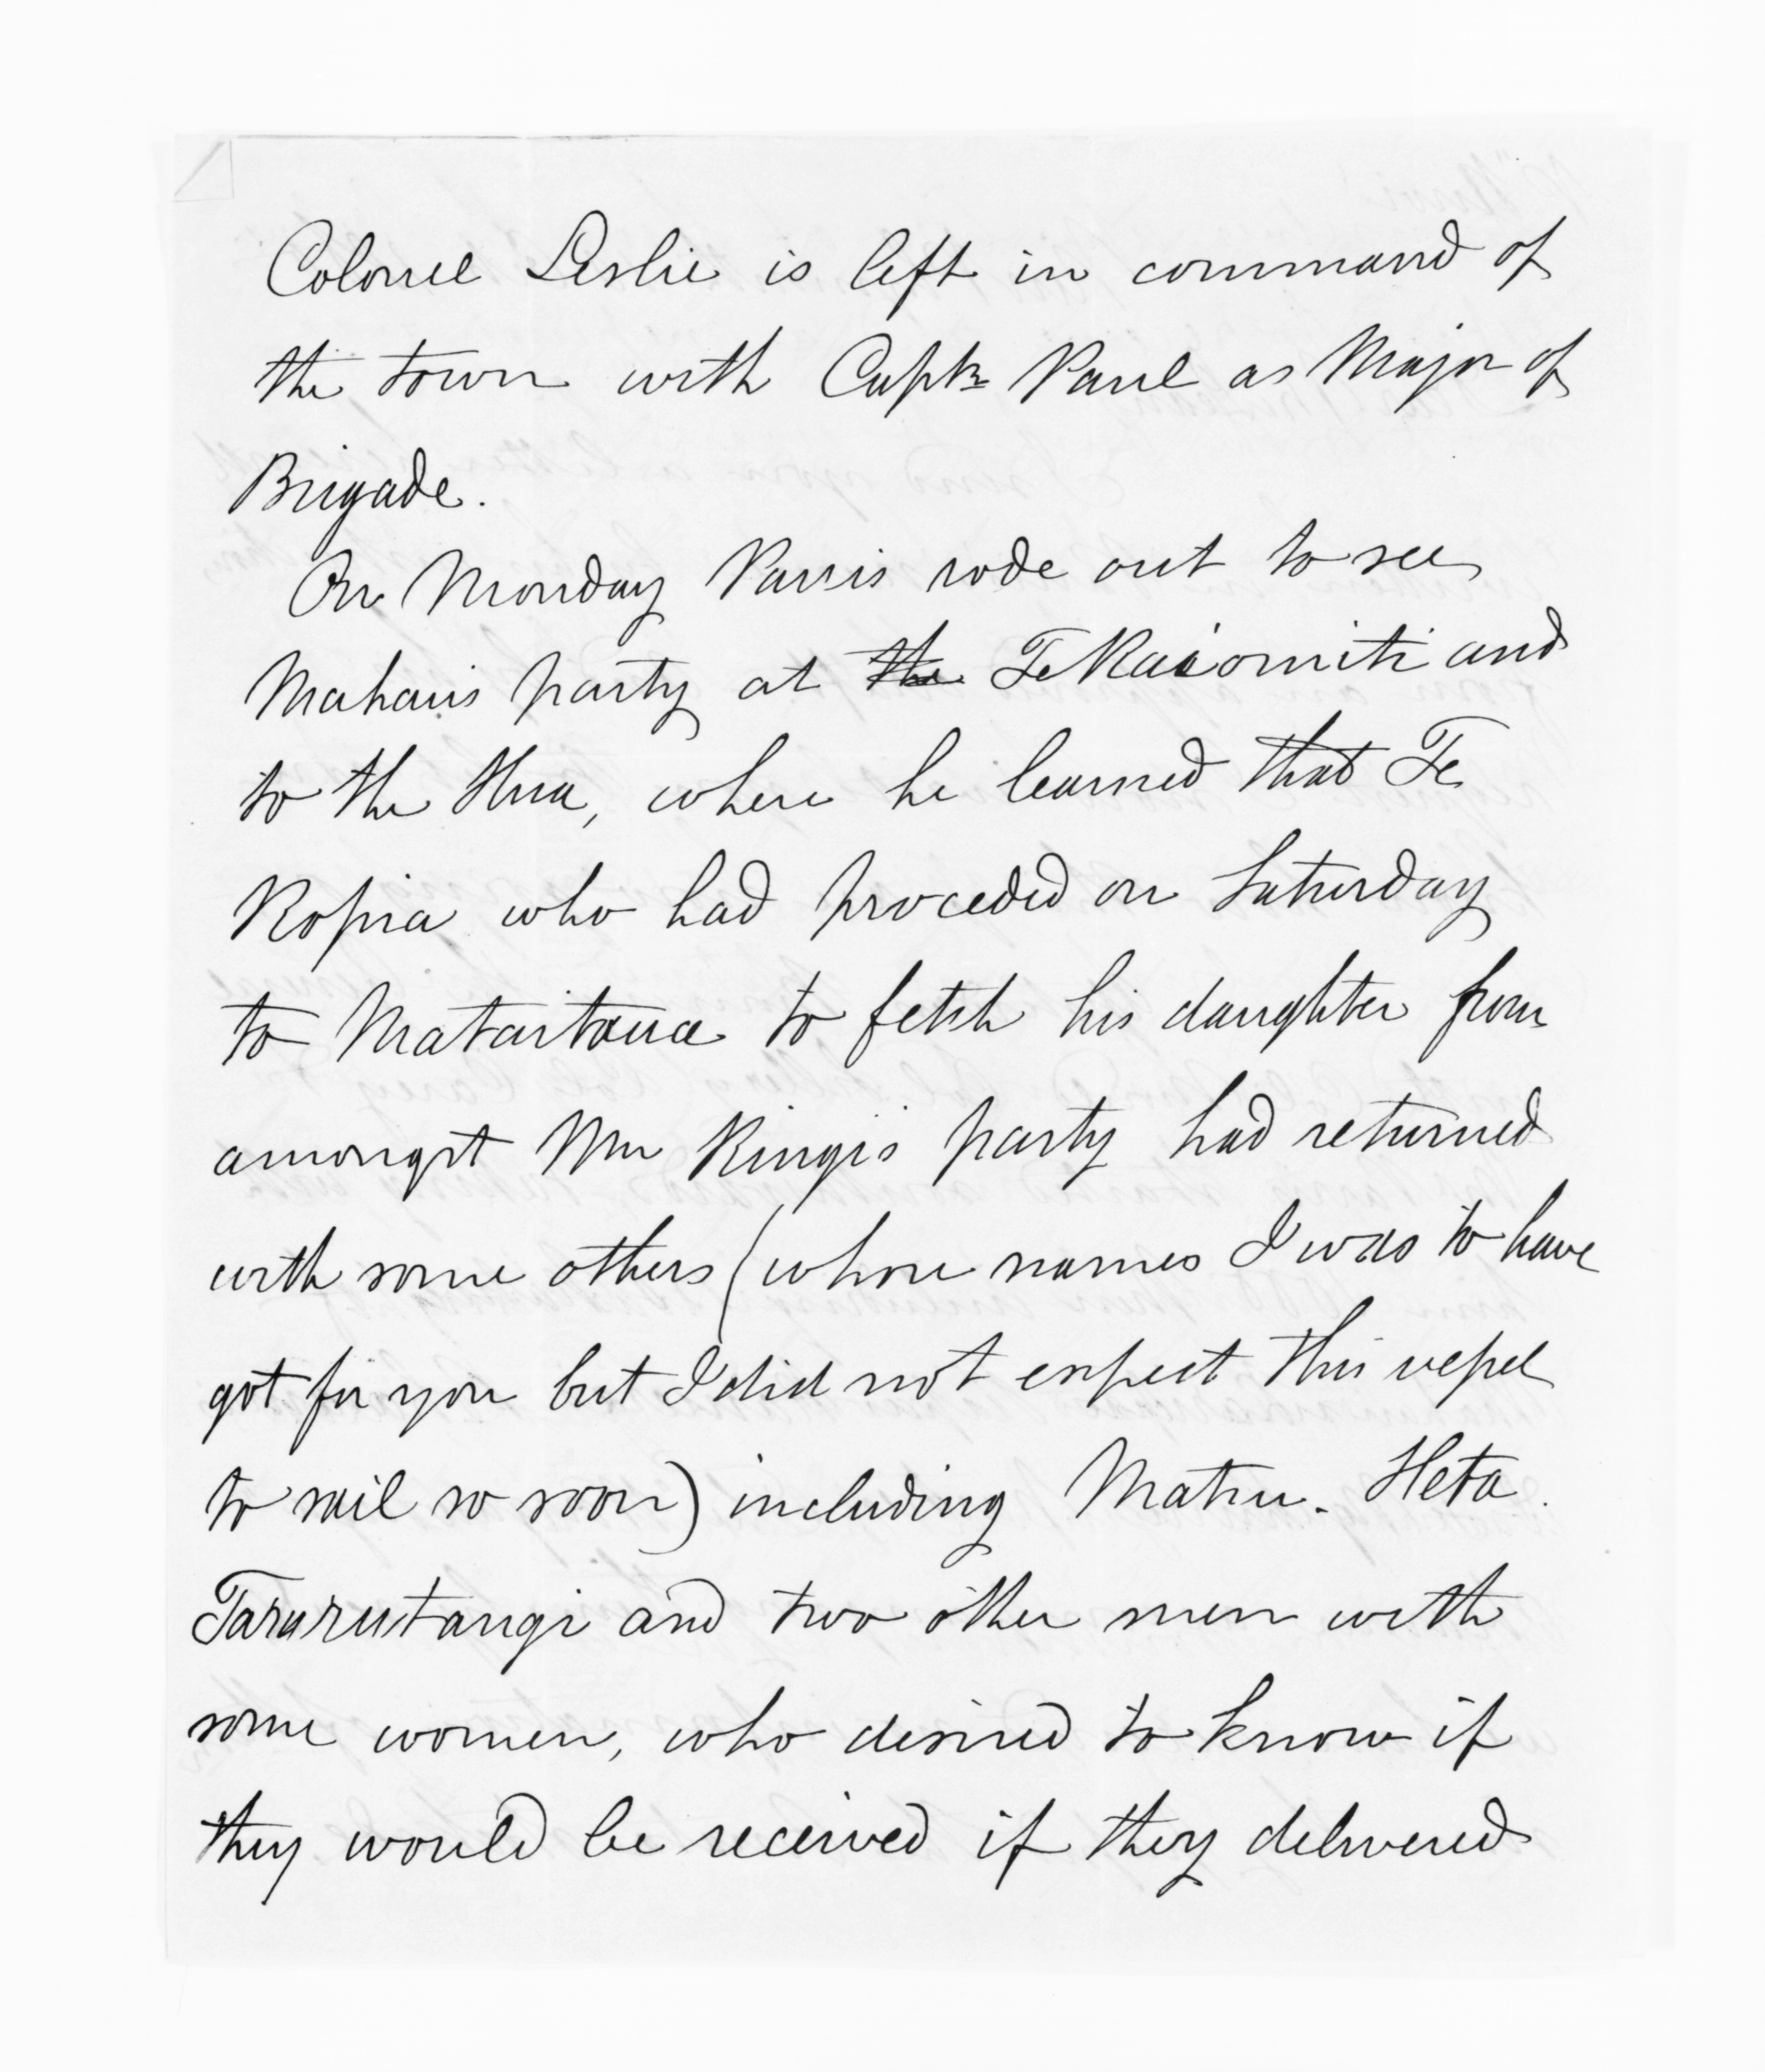 Colonel Leslie is left in command of
the town with Captn Paul as Major of
Brigade.
On Monday Parris rode out to see
Mahaus party at the Te Kaiomiti and
to the Hua, where he learned that Te
Ropia who had proceded on Saturday
to Mataitaua to fetch his daughter from
amongst Wm Kingi's party had returned
with some others (whose names I was to have
got for you but I did not expect this vessel
to sail so soon) including Matiu. Heta.
Tararutangi and two other men with
some women, who desired to know if
they would be received if they delivered